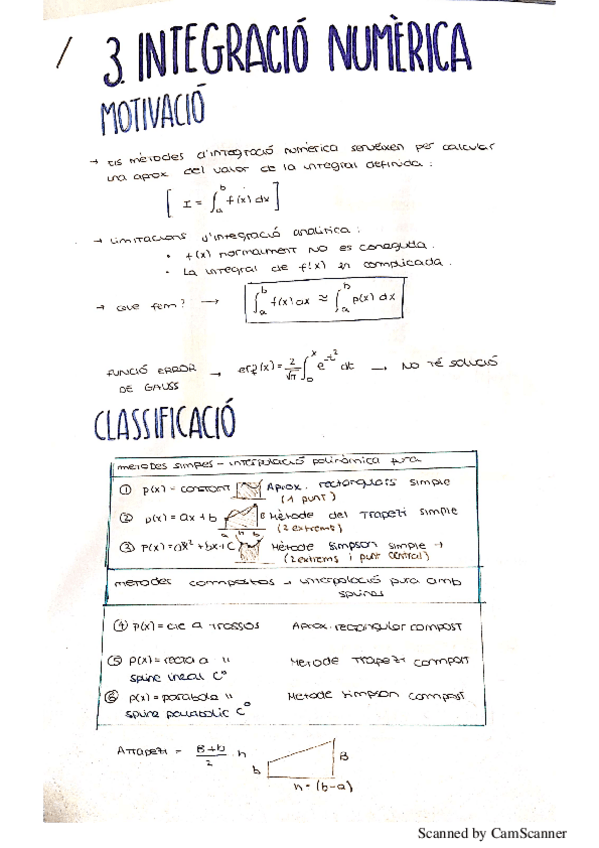 3. INTEGRACIÓ NUMÈRICA
MOTIVACIÓ
→ Els mètodes d'integració numèrica serveixen per calcular
una aprox. del valor de la integral definida:
[ I = ∫_a^b f(x) dx ]
→ Limitacions d'integració analítica:
• f(x) normalment NO es coneguda.
• La integral de f(x) és complicada.
→ Què fem? → ∫_a^b f(x) dx ≈ ∫_a^b p(x) dx
FUNCIÓ ERROR → erf(x) = 2/√π ∫_0^x e^{-t²} dt → NO TÉ SOLUCIÓ
DE GAUSS
CLASSIFICACIÓ
mètodes simples - interpolació polinòmica pura
① p(x) = constant Aprox. rectangular simple
(1 punt)
② p(x) = ax + b Mètode del Trapezi simple
(2 extrems)
③ P(x) = ax² + bx + C Mètode Simpson simple →
(2 extrems i punt central)
mètodes compostos → interpolació pura amb
splines
④ p(x) = cte a trossos Aprox. rectangular compost
⑤ p(x) = recta a " Mètode Trapezi compost
spline lineal C⁰
⑥ p(x) = parabola " Mètode Simpson compost
spline parabòlic C⁰
A trapezi = B+b/2 · h
b B
h = (b-a)
Scanned by CamScanner